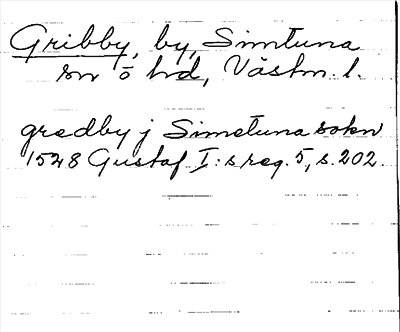 Gribby, by, Simtuna
sn o hd, Västm. l.
gredby j Simetuna sokn
1528 Gustaf I:s reg. 5, s. 202.